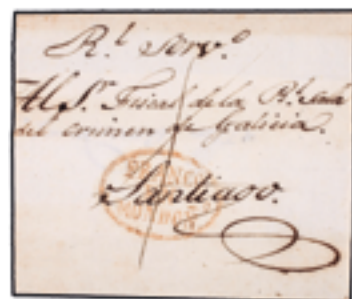 R.l Serv.o
Al S.r Fiscal de la R.l Sala
del crimen de Galicia.
FRANCO
Santiago.